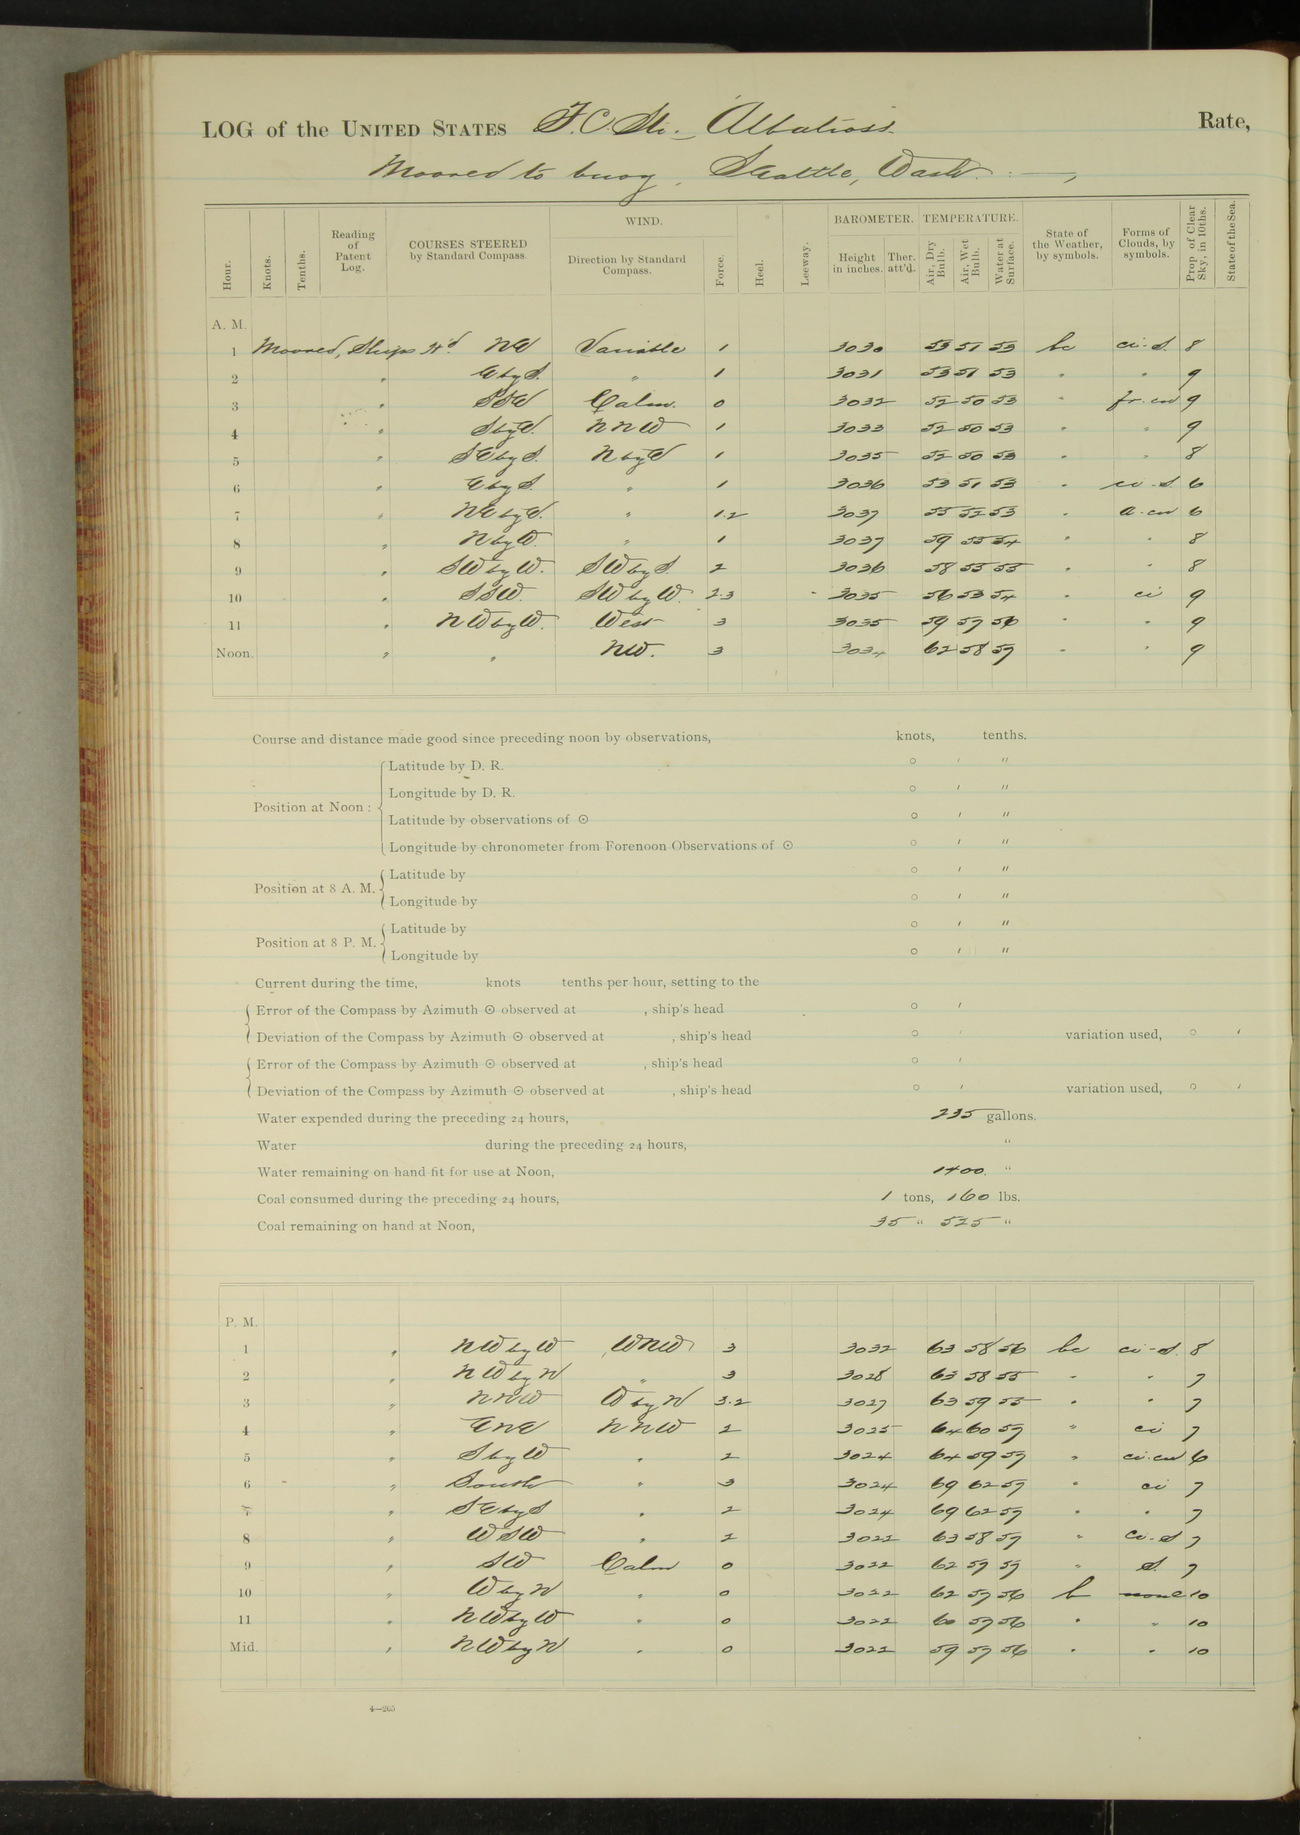 LOG of the UNITED STATES F. C. Str. Albatross Rate,
Moored to buoy, Seattle, Wash.
Hour. Knots. Tenths. Reading of Patent Log. COURSES STEERED by Standard Compass. WIND. Direction by Standard Compass. Force. Heel. Leeway. BAROMETER. Height in inches. Ther. att'd. TEMPERATURE. Air, Dry Bulb. Air, Wet Bulb. Water at Surface. State of the Weather, by symbols. Forms of Clouds, by symbols. Prop. of Clear Sky, in 10ths. State of the Sea.
A. M.
1 Moored, Ships H'd NE Variable 1 3030 53 51 53 bc ci-s. 8
2 " E by S. " 1 3031 53 51 53 " " 9
3 " SSE Calm. 0 3032 52 50 53 " fr. cu 9
4 " S by E. NNW 1 3033 52 50 53 " " 9
5 " SE by S. N by E 1 3035 52 50 53 " " 8
6 " E by S. " 1 3036 53 51 53 " ci-s 6
7 " NE by E. " 1.2 3037 55 52 53 " a-cu 6
8 " N by W. " 1 3037 59 55 54 " " 8
9 " SW by W. SW by S. 2 3036 58 55 55 " " 8
10 " SSW. SW by W. 2.3 3035 56 53 54 " ci 9
11 " NW by W. West 3 3035 59 57 56 " " 9
Noon. " " NW. 3 3034 62 58 57 " " 9
Course and distance made good since preceding noon by observations, knots, tenths.
Position at Noon: Latitude by D. R. ° ′ ″
Longitude by D. R. ° ′ ″
Latitude by observations of ☉ ° ′ ″
Longitude by chronometer from Forenoon Observations of ☉ ° ′ ″
Position at 8 A. M. Latitude by ° ′ ″
Longitude by ° ′ ″
Position at 8 P. M. Latitude by ° ′ ″
Longitude by ° ′ ″
Current during the time, knots tenths per hour, setting to the
Error of the Compass by Azimuth ☉ observed at , ship's head ° ′
Deviation of the Compass by Azimuth ☉ observed at , ship's head ° ′ variation used, ° ′
Error of the Compass by Azimuth ☉ observed at , ship's head ° ′
Deviation of the Compass by Azimuth ☉ observed at , ship's head ° ′ variation used, ° ′
Water expended during the preceding 24 hours, 235 gallons.
Water during the preceding 24 hours, "
Water remaining on hand fit for use at Noon, 1400. "
Coal consumed during the preceding 24 hours, 1 tons, 160 lbs.
Coal remaining on hand at Noon, 35 " 525 "
P. M.
1 " NW by W WNW 3 3032 63 58 56 bc ci-s. 8
2 " NW by N " 3 3028 63 58 55 " " 7
3 " NNW W by N 3.2 3027 63 59 55 " " 7
4 " ENE NNW 2 3025 64 60 57 " ci 7
5 " S by W " 2 3024 64 59 57 " ci-cu 6
6 " South " 3 3024 69 62 57 " ci 7
7 " SE by S " 2 3024 69 62 57 " " 7
8 " WSW " 2 3022 63 58 57 " ci-s 7
9 " SW Calm 0 3022 62 57 57 " s. 7
10 " W by N " 0 3022 62 57 56 b none 10
11 " NW by W " 0 3022 60 57 56 " " 10
Mid. " NW by N " 0 3022 59 57 56 " " 10
4—265